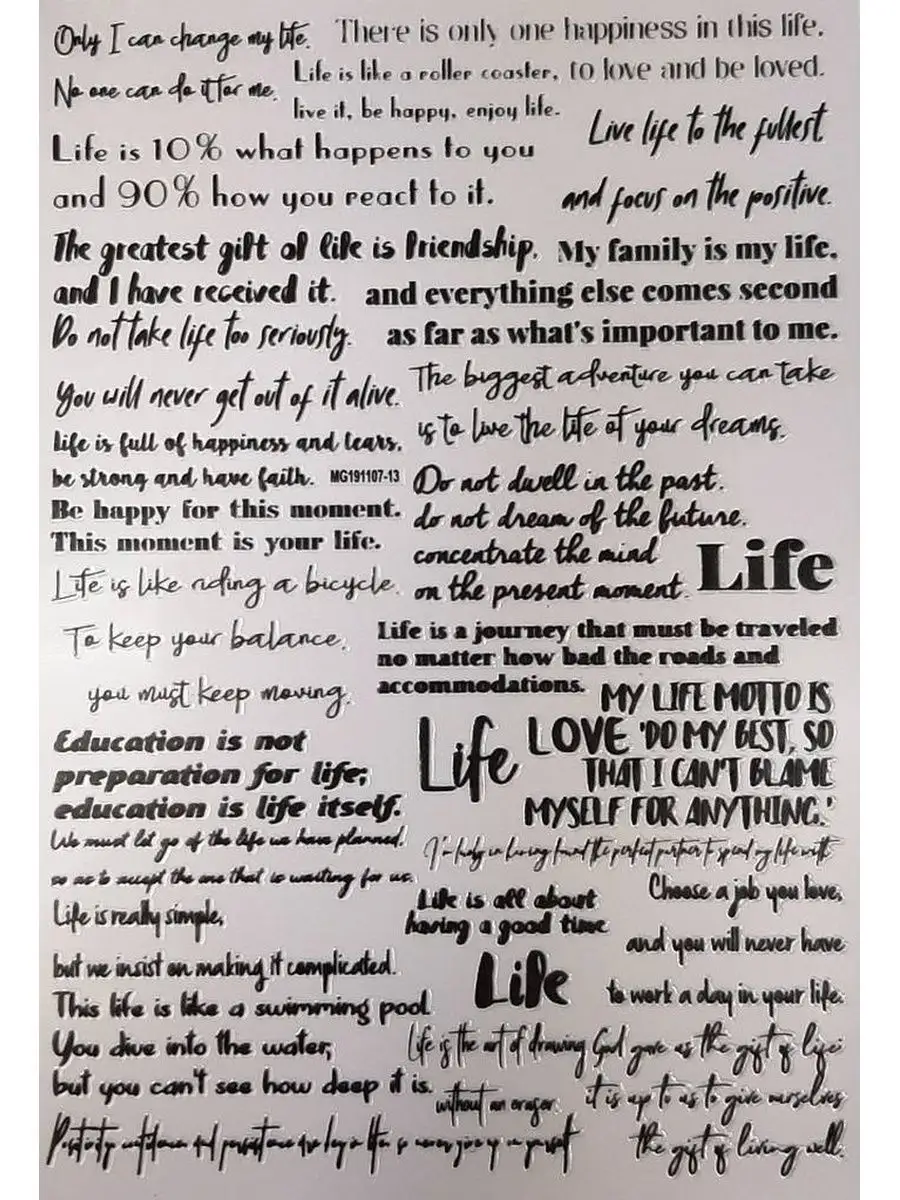 Only I can change my life.
No one can do it for me.
There is only one happiness in this life,
to love and be loved.
Life is like a roller coaster,
live it, be happy, enjoy life.
Life is 10% what happens to you
and 90% how you react to it.
Live life to the fullest
and focus on the positive.
The greatest gift of life is friendship,
and I have received it.
My family is my life,
and everything else comes second
as far as what's important to me.
Do not take life too seriously.
You will never get out of it alive.
The biggest adventure you can take
is to live the life of your dreams.
Life is full of happiness and tears,
be strong and have faith.
MG191107-13
Be happy for this moment.
This moment is your life.
Do not dwell in the past,
do not dream of the future,
concentrate the mind
on the present moment.
Life
Life is like riding a bicycle.
To keep your balance,
you must keep moving.
Life is a journey that must be traveled
no matter how bad the roads and
accommodations.
MY LIFE MOTTO IS
LOVE 'DO MY BEST, SO
THAT I CAN'T BLAME
MYSELF FOR ANYTHING.'
Life
Education is not
preparation for life;
education is life itself.
We must let go of the life we have planned,
so as to accept the one that is waiting for us.
I'm lucky in having found the perfect partner to spend my life with
Life is really simple,
but we insist on making it complicated.
Life is all about
having a good time
Choose a job you love,
and you will never have
to work a day in your life.
Life
This life is like a swimming pool.
You dive into the water,
but you can't see how deep it is.
Life is the art of drawing
without an eraser.
God gave us the gift of life;
it is up to us to give ourselves
the gift of living well.
Positivity, confidence and persistence are key in life, so never give up on yourself